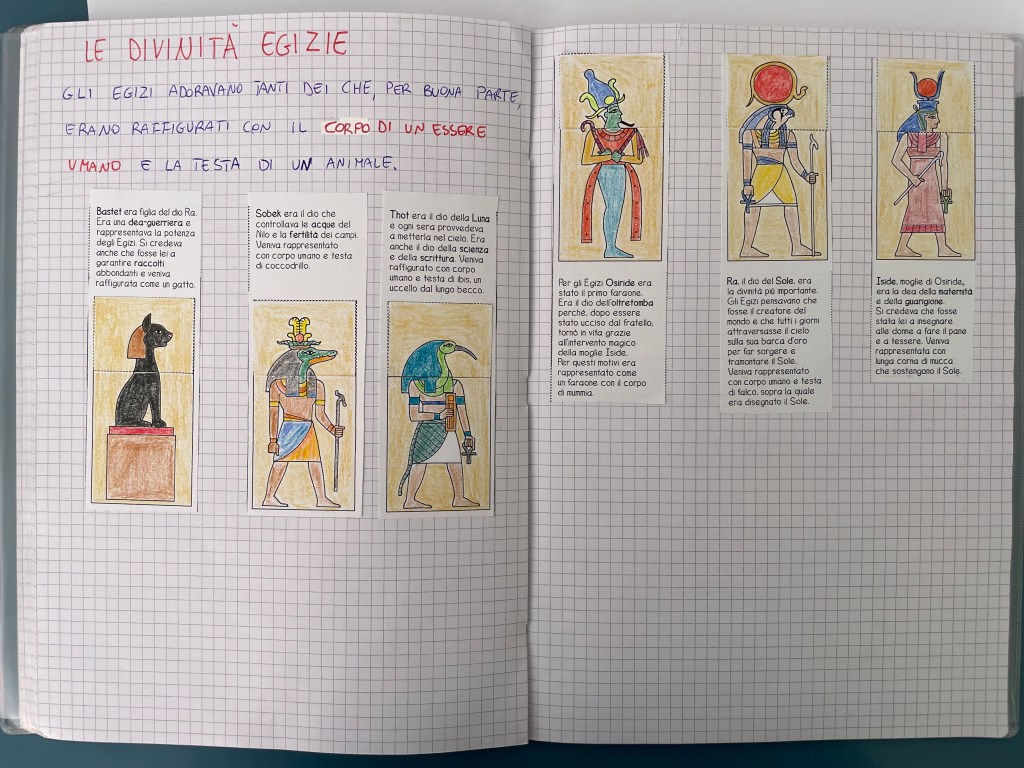 LE DIVINITÀ EGIZIE
GLI EGIZI ADORAVANO TANTI DEI CHE, PER BUONA PARTE,
ERANO RAFFIGURATI CON IL CORPO DI UN ESSERE
UMANO E LA TESTA DI UN ANIMALE.
Bastet era figlia del dio Ra.
Era una dea-guerriera e
rappresentava la potenza
degli Egizi. Si credeva
anche che fosse lei a
garantire raccolti
abbondanti e veniva
raffigurata come un gatto.
Sobek era il dio che
controllava le acque del
Nilo e la fertilità dei campi.
Veniva rappresentato
con corpo umano e testa
di coccodrillo.
Thot era il dio della Luna
e ogni sera provvedeva
a metterla nel cielo. Era
anche il dio della scienza
e della scrittura. Veniva
raffigurato con corpo
umano e testa di ibis, un
uccello dal lungo becco.
Per gli Egizi Osiride era
stato il primo faraone.
Era il dio dell'oltretomba
perché, dopo essere
stato ucciso dal fratello,
tornò in vita grazie
all'intervento magico
della moglie Iside.
Per questi motivi era
rappresentato come
un faraone con il corpo
di mummia.
Ra, il dio del Sole, era
la divinità più importante.
Gli Egizi pensavano che
fosse il creatore del
mondo e che tutti i giorni
attraversasse il cielo
sulla sua barca d'oro
per far sorgere e
tramontare il Sole.
Veniva rappresentato
con corpo umano e testa
di falco, sopra la quale
era disegnato il Sole.
Iside, moglie di Osiride,
era la dea della maternità
e della guarigione.
Si credeva che fosse
stata lei a insegnare
alle donne a fare il pane
e a tessere. Veniva
rappresentata con
lunga corna di mucca
che sostengono il Sole.